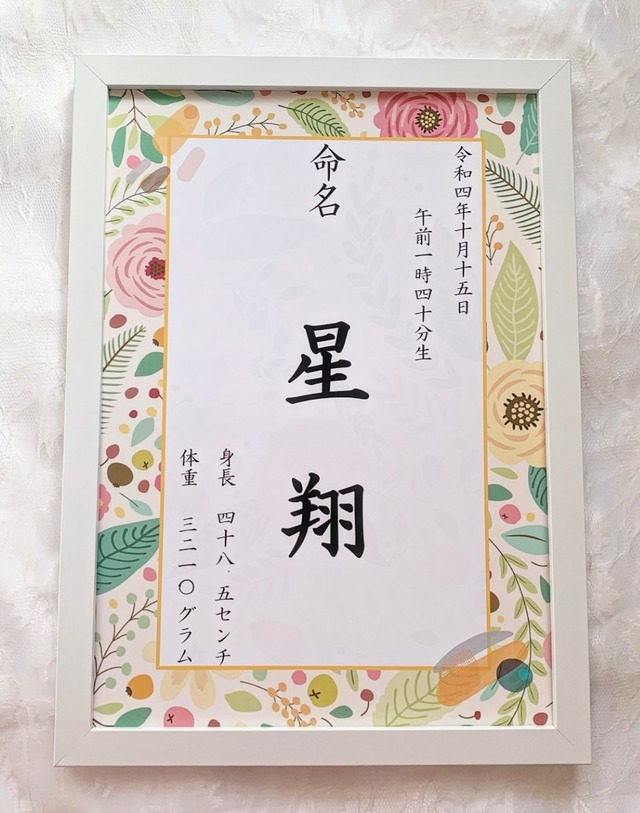 令和四年十月十五日
午前一時四十分生
命名
星翔
身長 四十八.五センチ
体重 三二一〇グラム